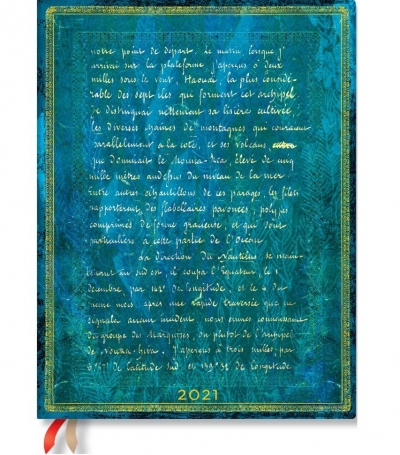 notre point de départ. Le matin lorsque j'
arrivai sur la plateforme j'aperçus à deux
milles sous le vent, Haouaï, la plus considé-
rable des sept îles qui forment cet archipel.
Je distinguai nettement sa lisière cultivée,
les diverses chaînes de montagnes qui couraient
parallèlement à la côte, et ses volcans
que dominait le Mouna-Rea, élevé de cinq
mille mètres audessus du niveau de la mer
Entre autres échantillons de ces parages, les filets
rapportèrent des flabellaires pavonées, polypes
comprimés de forme gracieuse, et qui sont
particuliers à cette partie de l'Océan
La direction du Nautilus se main-
au sud est. Il coupa l'Equateur, le 1
décembre par 142° de longitude, et le 4 du
même mois, après une rapide traversée que ne
signala aucun incident nous eumes connaissance
du groupe des Marquises, ou plutôt de l'archipel
de Nouka-hiva. J'aperçus à trois milles, par
8°57' de latitude sud et 139°32' de longitude
2021